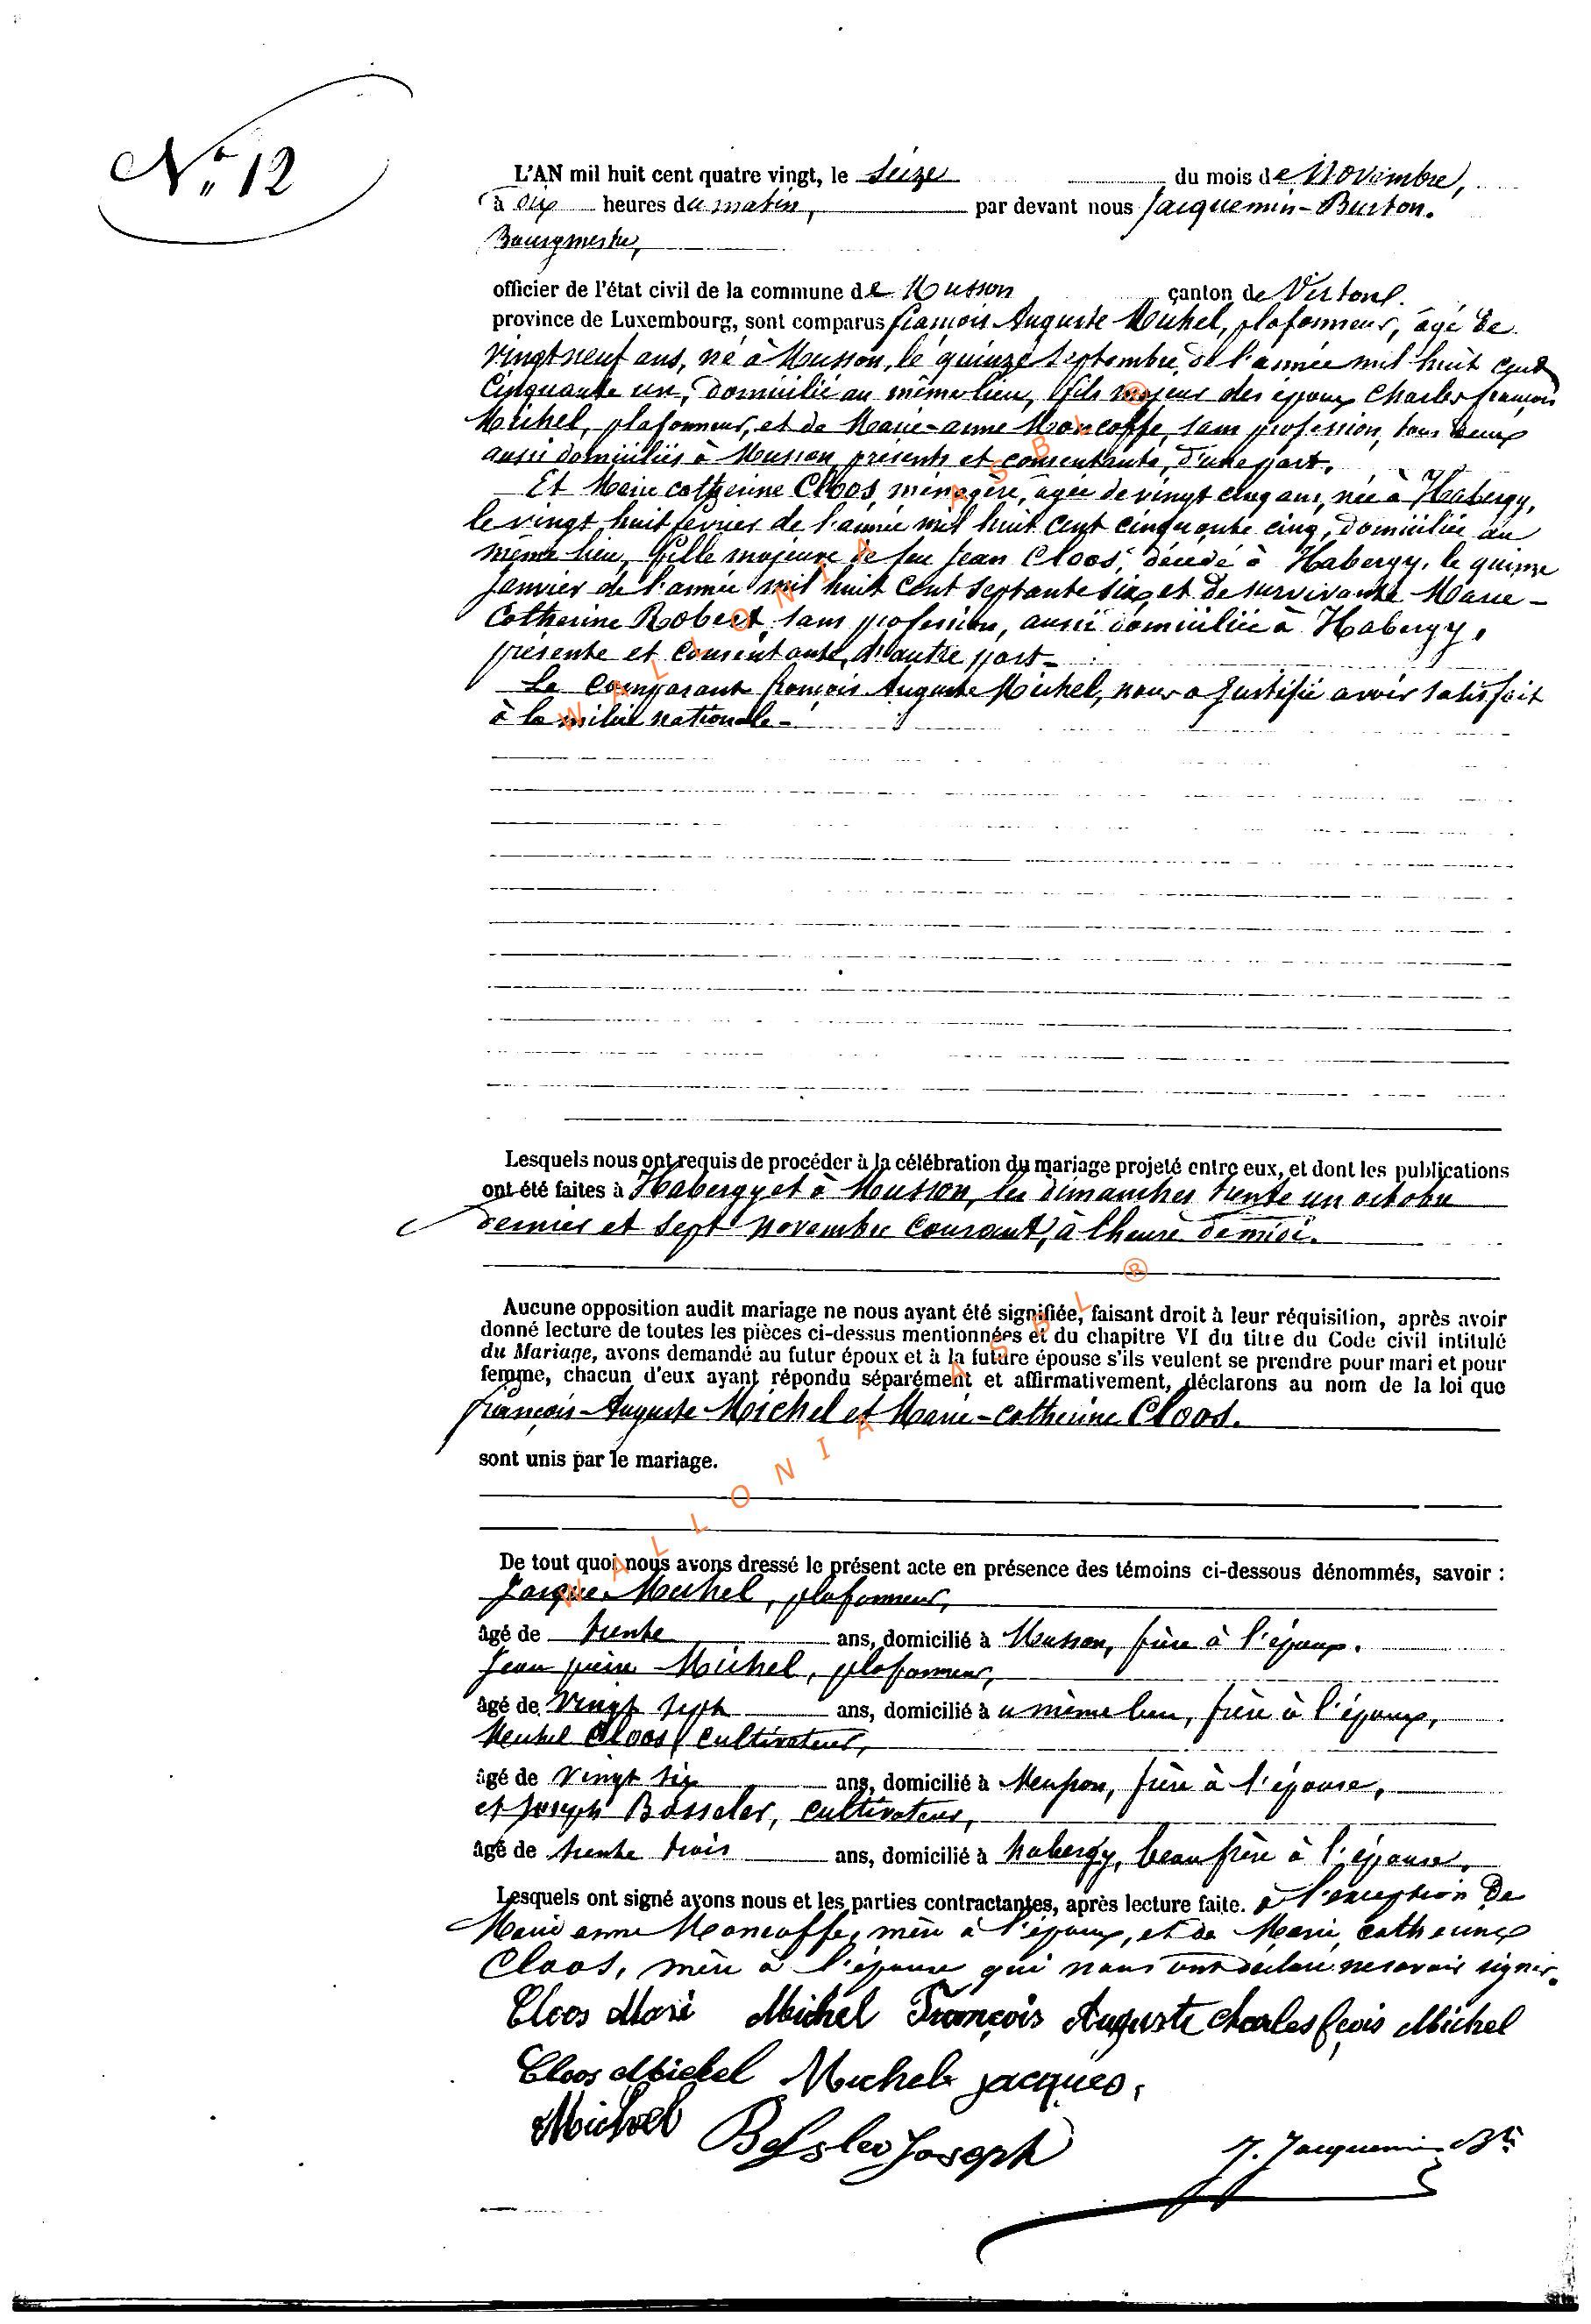 N° 12
L'AN mil huit cent quatre vingt, le seize du mois de Novembre,
à dix heures du matin, par devant nous Jacquemin-Burton.
Bourgmestre,
officier de l'état civil de la commune de Musson canton de Virton.
province de Luxembourg, sont comparus françois Auguste Michel, plafonneur, âgé de
vingt neuf ans, né à Musson, le quinze septembre de l'année mil huit cent
cinquante un, domicilié au même lieu, fils majeur des époux Charles françois
Michel, plafonneur, et de Marie-anne Moncoffe, sans profession, tous deux
aussi domiciliés à Musson, présents et consentants, d'une part.
Et Marie catherine Cloos, ménagère, âgée de vingt cinq ans, née à Habergy,
le vingt huit février de l'année mil huit cent cinquante cinq, domiciliée au
même lieu, fille majeure de feu Jean Cloos, décédé à Habergy, le quinze
Janvier de l'année mil huit cent septante six, et de survivante Marie-
Catherine Robert, sans profession, aussi domiciliée à Habergy,
présente et consentante, d'autre part-
Le Comparant françois Auguste Michel, nous a justifié avoir satisfait
à la milice nationale-
Lesquels nous ont requis de procéder à la célébration du mariage projeté entre eux, et dont les publications
ont été faites à Habergy et à Musson, les dimanches trente un octobre
dernier et sept novembre courant, à l'heure de midi.
Aucune opposition audit mariage ne nous ayant été signifiée, faisant droit à leur réquisition, après avoir
donné lecture de toutes les pièces ci-dessus mentionnées et du chapitre VI du titre du Code civil intitulé
du Mariage, avons demandé au futur époux et à la future épouse s'ils veulent se prendre pour mari et pour
femme, chacun d'eux ayant répondu séparément et affirmativement, déclarons au nom de la loi que
françois-Auguste Michel et Marie-catherine Cloos.
sont unis par le mariage.
De tout quoi nous avons dressé le présent acte en présence des témoins ci-dessous dénommés, savoir :
Jacques Michel, plafonneur,
âgé de trente ans, domicilié à Musson, frère à l'époux.
Jean pierre Michel, plafonneur,
âgé de vingt sept ans, domicilié au même lieu, frère à l'époux,
Michel Cloos, cultivateur,
âgé de vingt six ans, domicilié à Musson, frère à l'épouse,
et Joseph Bosseler, cultivateur,
âgé de trente trois ans, domicilié à habergy, beau frère à l'épouse.
Lesquels ont signé avons nous et les parties contractantes, après lecture faite. à l'exception de
Marie anne Moncoffe, mère à l'époux, et de Marie catherine
Cloos, mère à l'épouse qui nous ont déclaré ne savoir signer.
Cloos Mari Michel François Auguste Charles fçois Michel
Cloos Michel Michel jacques,
Michel Besler Joseph J. Jacquemin Btn
WALLONIA ASBL ®
WALLONIA ASBL ®